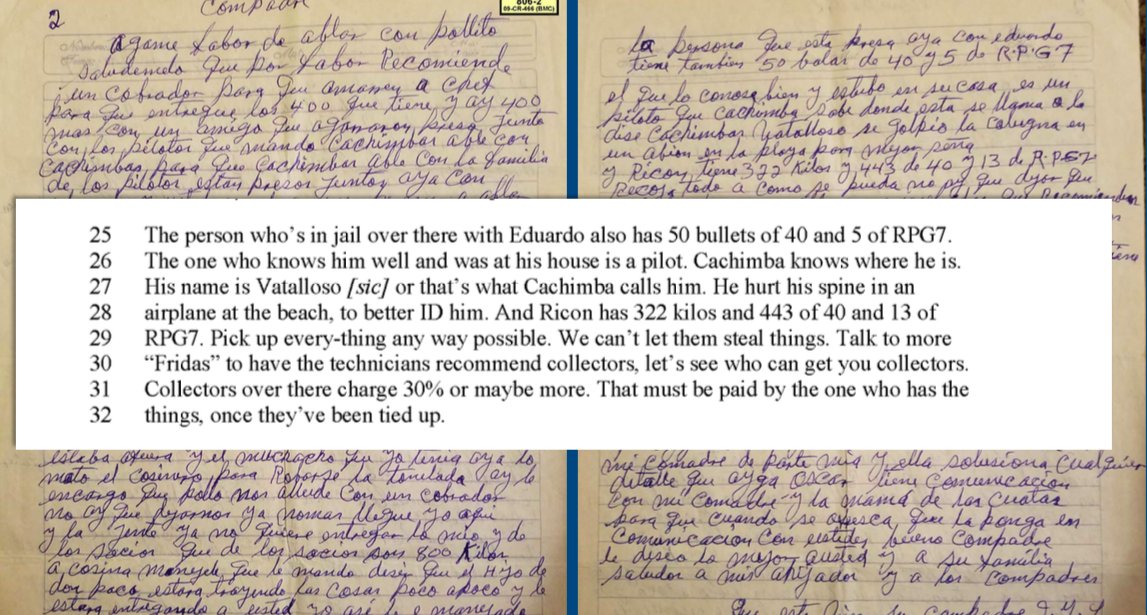 2
Compadre
806-2
09-CR-466 (BMC)
agame fabor de ablar con pollito
Saludemelo que por fabor Recomiende
un cobrador para que amarren a chet
para que entregue los 400 que tiene y ay 400
mas con un amigo que agarraron preso junto
con los pilotos que mando Cachimbas able con
Cachimbas para que Cachimbas Able Con la familia
de los pilotos estan presos juntos aya con
la persona que esta presa aya con eduardo
tiene tambien 50 balas de 40 y 5 de R.P.G 7
el que lo conose bien y estubo en su casa es un
piloto que cachimba sabe donde esta se llama o le
dise Cachimbas Vatalloso se golpio la columna en
un abion en la playa para mejor seña
y Ricon tiene 322 Kilos y 443 de 40 y 13 de R.P.G 7
Recoja todo a como se pueda no ay que dejar que
25 The person who's in jail over there with Eduardo also has 50 bullets of 40 and 5 of RPG7.
26 The one who knows him well and was at his house is a pilot. Cachimba knows where he is.
27 His name is Vatalloso [sic] or that's what Cachimba calls him. He hurt his spine in an
28 airplane at the beach, to better ID him. And Ricon has 322 kilos and 443 of 40 and 13 of
29 RPG7. Pick up every-thing any way possible. We can't let them steal things. Talk to more
30 "Fridas" to have the technicians recommend collectors, let's see who can get you collectors.
31 Collectors over there charge 30% or maybe more. That must be paid by the one who has the
32 things, once they've been tied up.
estaba afuera y el muchacho que yo tenia aya lo
mato el cosinero para Robarse la tonelada ay le
encargo que pollo nos allude con un cobrador
no ay que dejarnos ya nomas llegue yo aqui
y la jente ya no quiere entregar lo mio y de
los socios que de los socios son 800 Kilos
a cosina manejele que le mando desir que el Hijo de
don paco estara trayendo las cosas poco apoco y le
estara entregando a usted yo asi le e manejado
mi comadre de parte mia y ella solusiona cualquier
detalle que ayga Oscar tiene comunicacion
con mi comadre y la mama de las cuatas
para que cuando se ofresca que la ponga en
comunicacion con ustedes bueno compadre
le deseo lo mejor austed y a su familia
saludos a mis ahijados y a los compadres